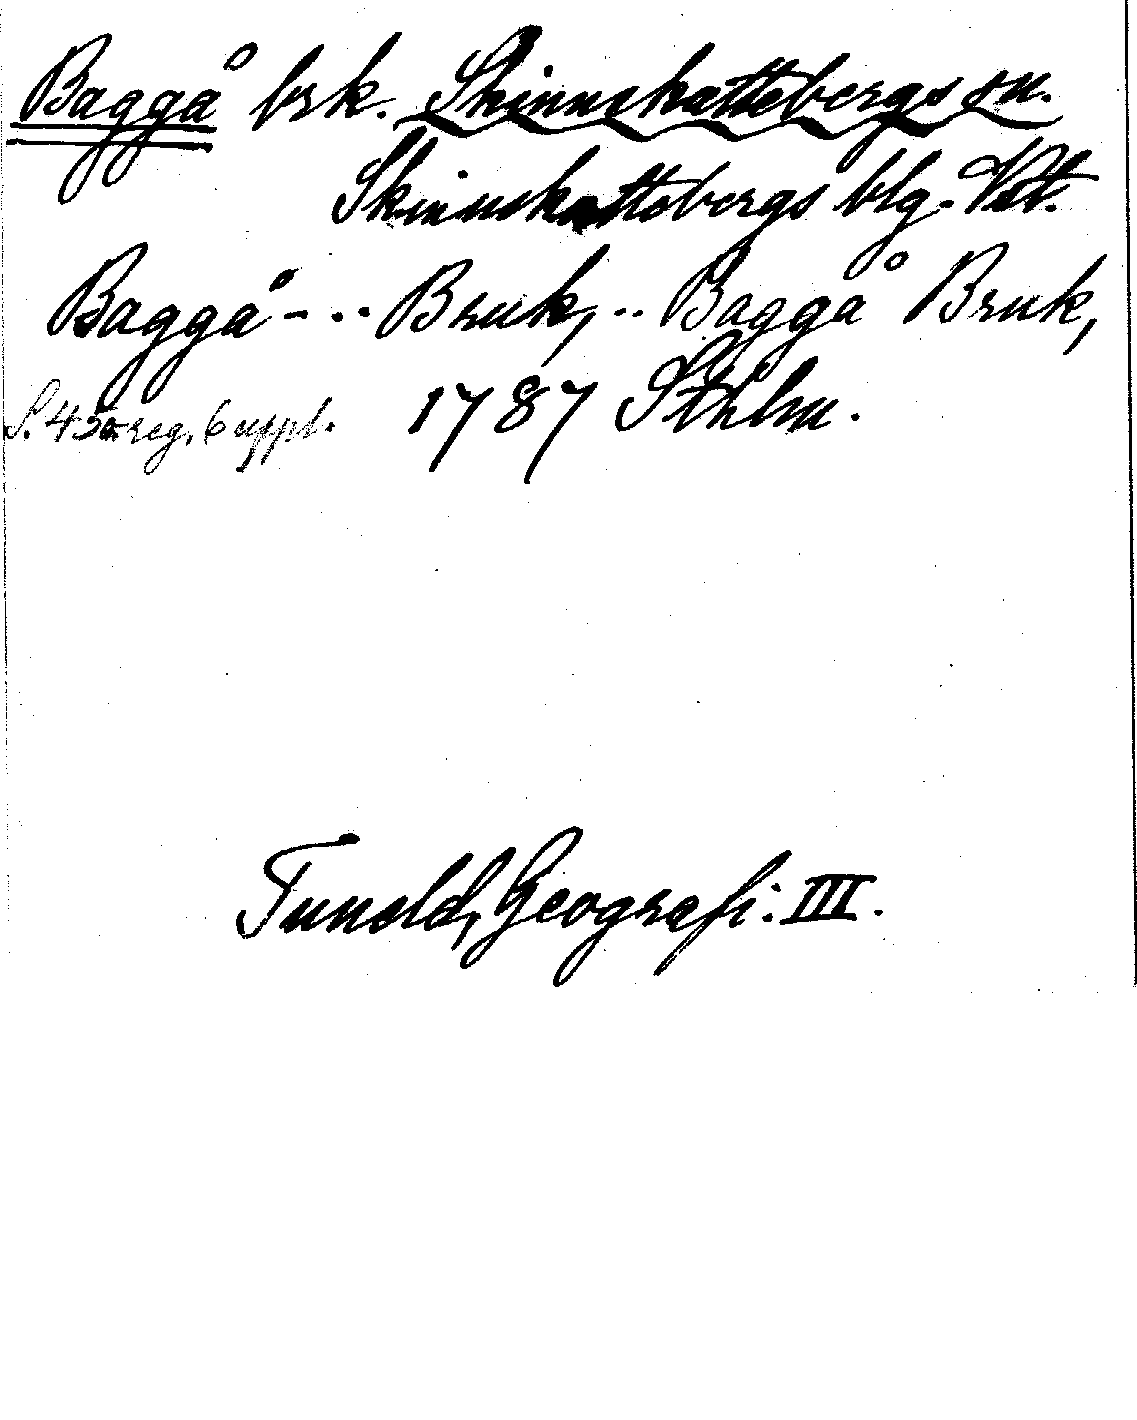 Baggå brk. Skinnskattebergs sn.
Skinnskattebergs blg. Vstl.
Baggå - .. Bruk, .. Baggå Bruk,
S. 45 reg. 6 uppl. 1787 Sthlm.
Tuneld, Geografi. III.